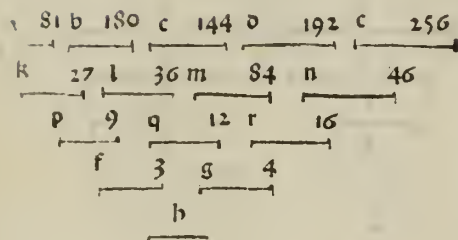 81 b 180 c 144 d 192 c 256
k 27 l 36 m 84 n 46
p 9 q 12 r 16
f 3 g 4
h